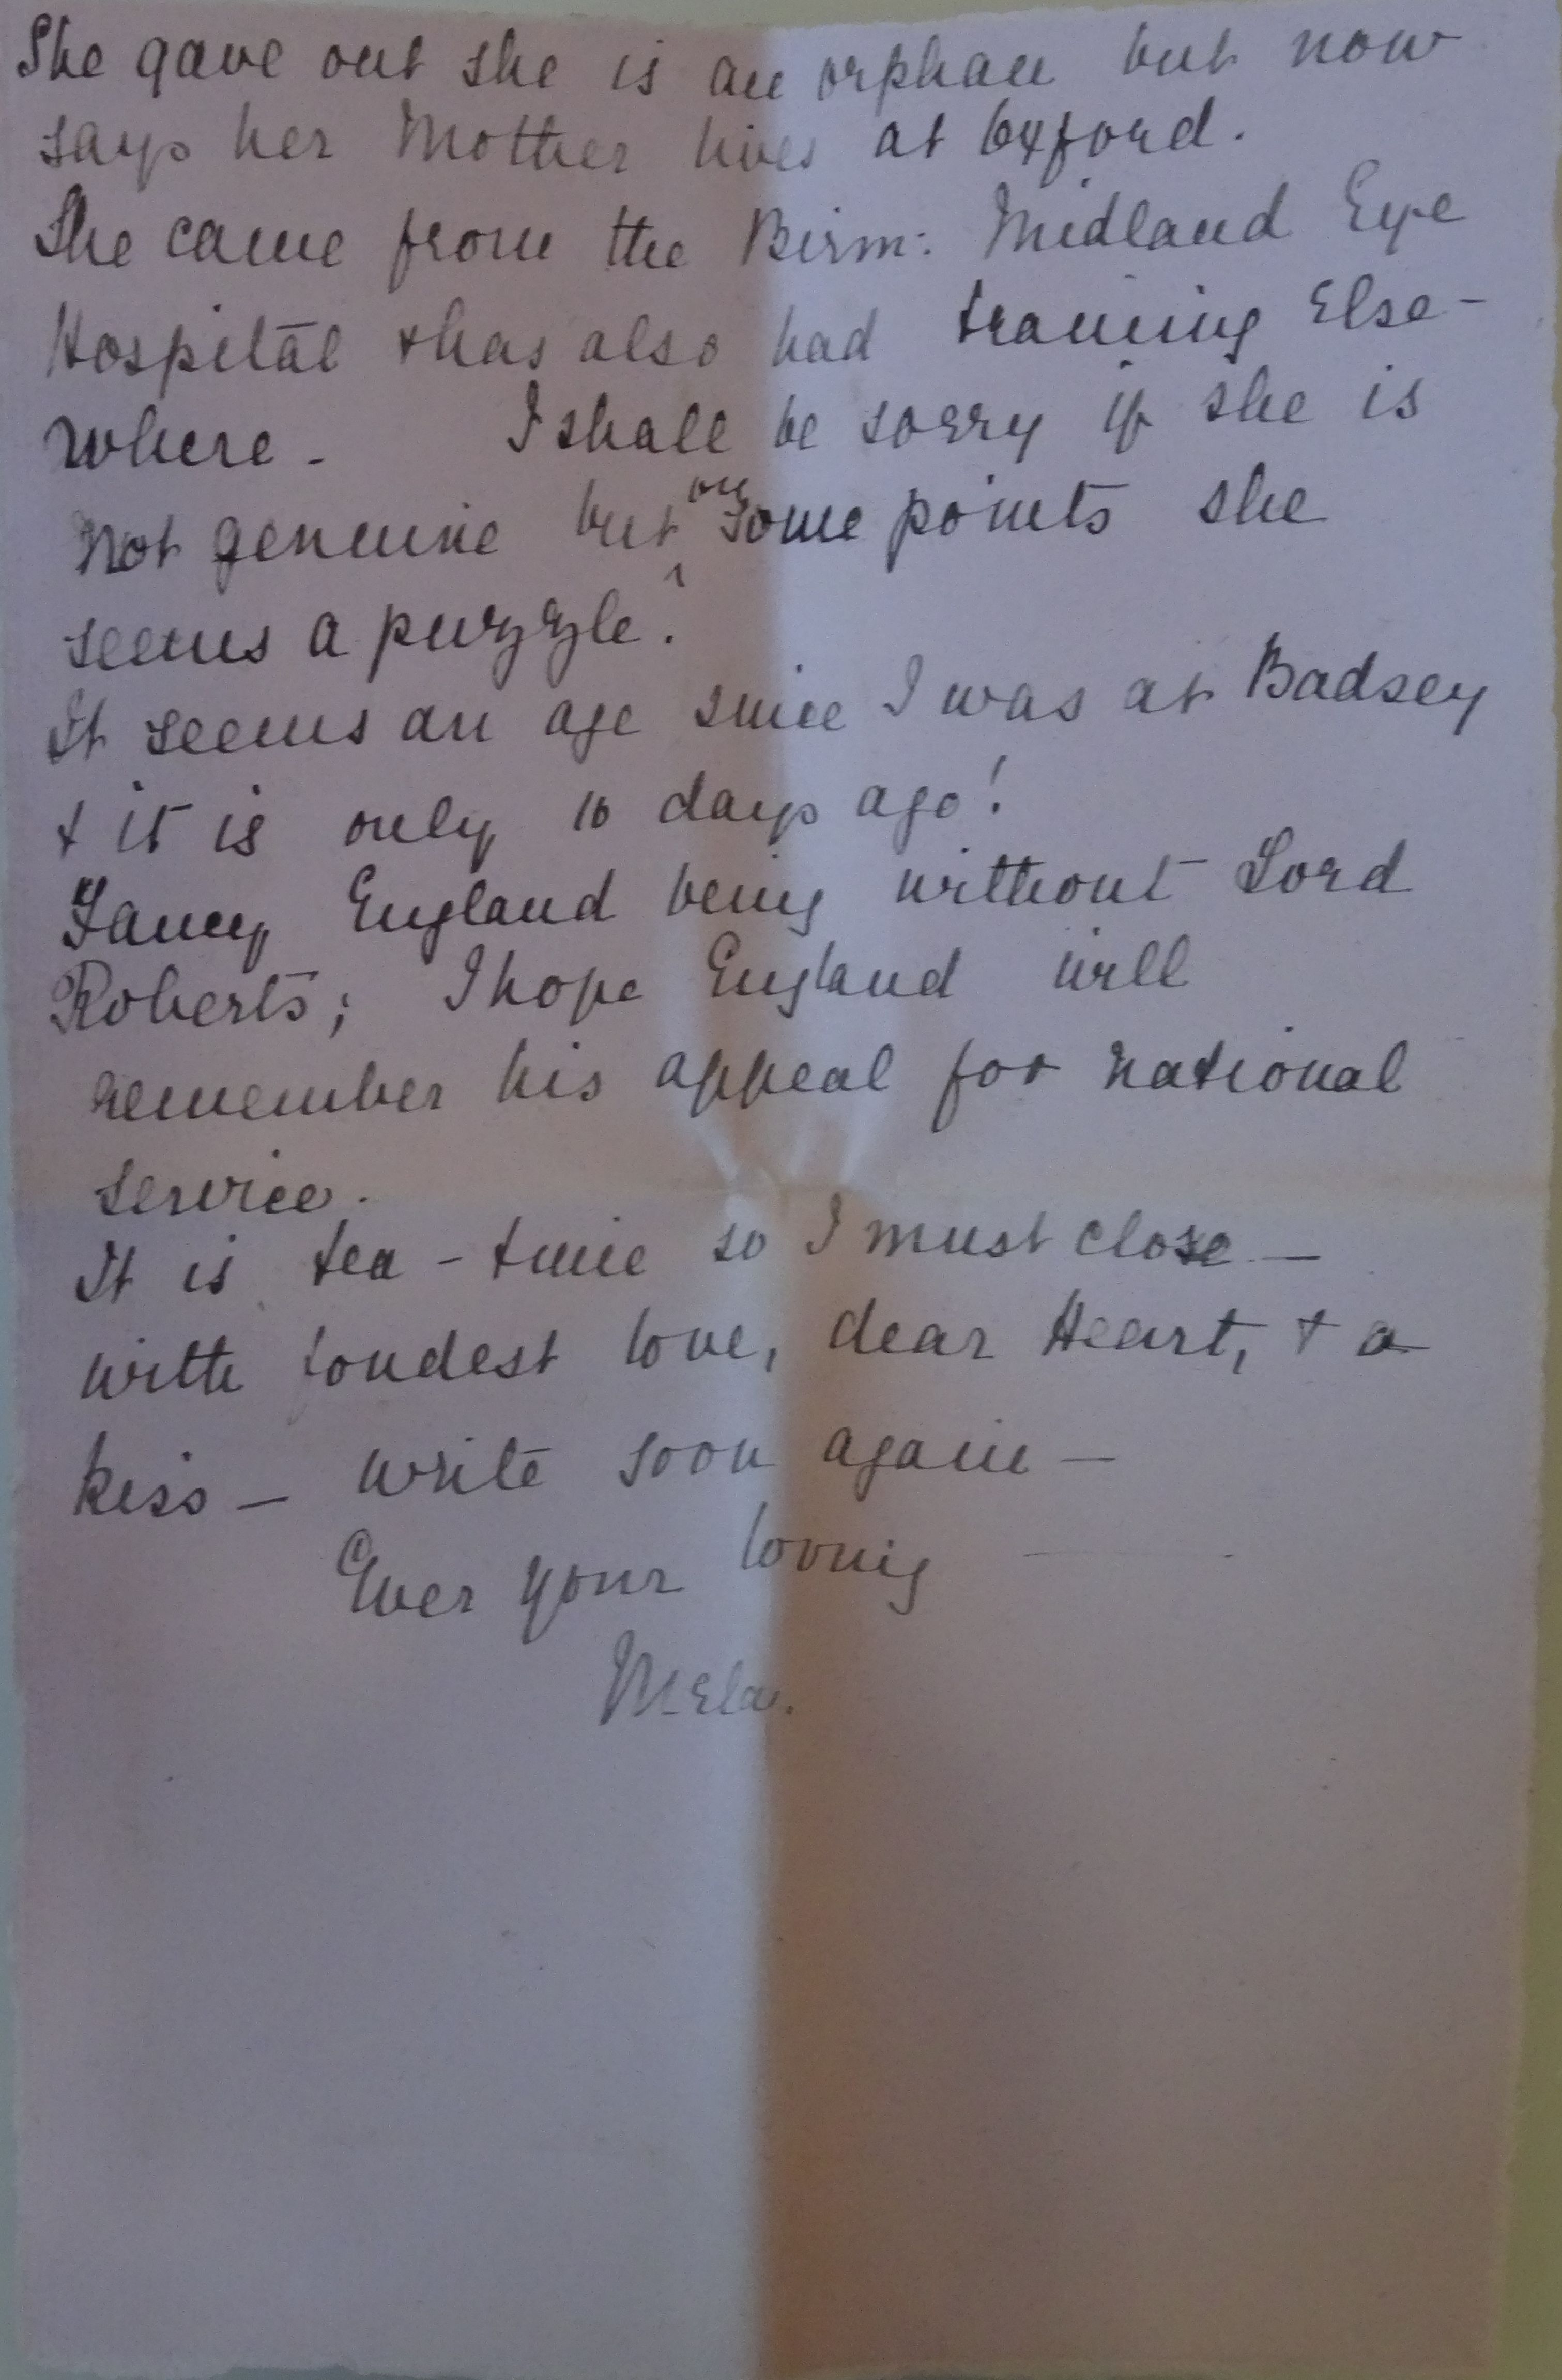 She gave out she is an orphan but now
says her Mother lives at Oxford.
She came from the Birm: Midland Eye
Hospital & has also had training Else-
where - I shall be sorry if she is
not genuine but ^on some points she
seems a puzzle.
It seems an age since I was at Badsey
& it is only 10 days ago!
Fancy England being without Lord
Roberts; I hope England will
remember his appeal for national
service.
It is tea-time so I must close —
with fondest love, dear Heart, & a
kiss — write soon again —
Ever your loving
Mela.